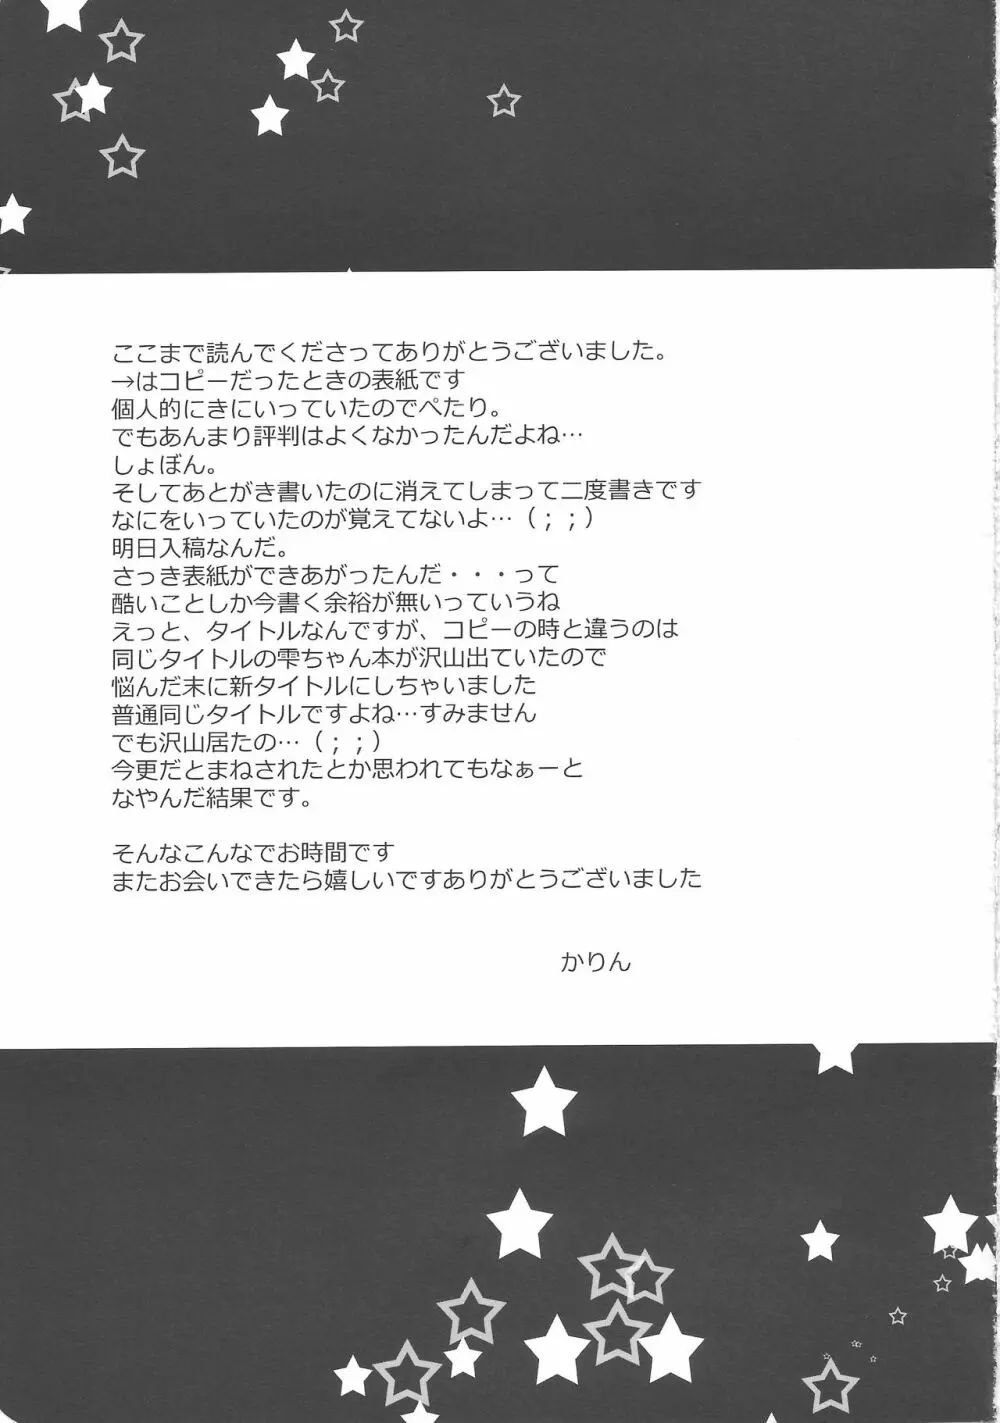 ここまで読んでくださってありがとうございました。
→はコピーだったときの表紙です
個人的にきにいっていたのでぺたり。
でもあんまり評判はよくなかったんだよね…
しょぼん。
そしてあとがき書いたのに消えてしまって二度書きです
なにをいっていたのが覚えてないよ…（；；）
明日入稿なんだ。
さっき表紙ができあがったんだ・・・って
酷いことしか今書く余裕が無いっていうね
えっと、タイトルなんですが、コピーの時と違うのは
同じタイトルの雫ちゃん本が沢山出ていたので
悩んだ末に新タイトルにしちゃいました
普通同じタイトルですよね…すみません
でも沢山居たの…（；；）
今更だとまねされたとか思われてもなぁーと
なやんだ結果です。
そんなこんなでお時間です
またお会いできたら嬉しいですありがとうございました
かりん